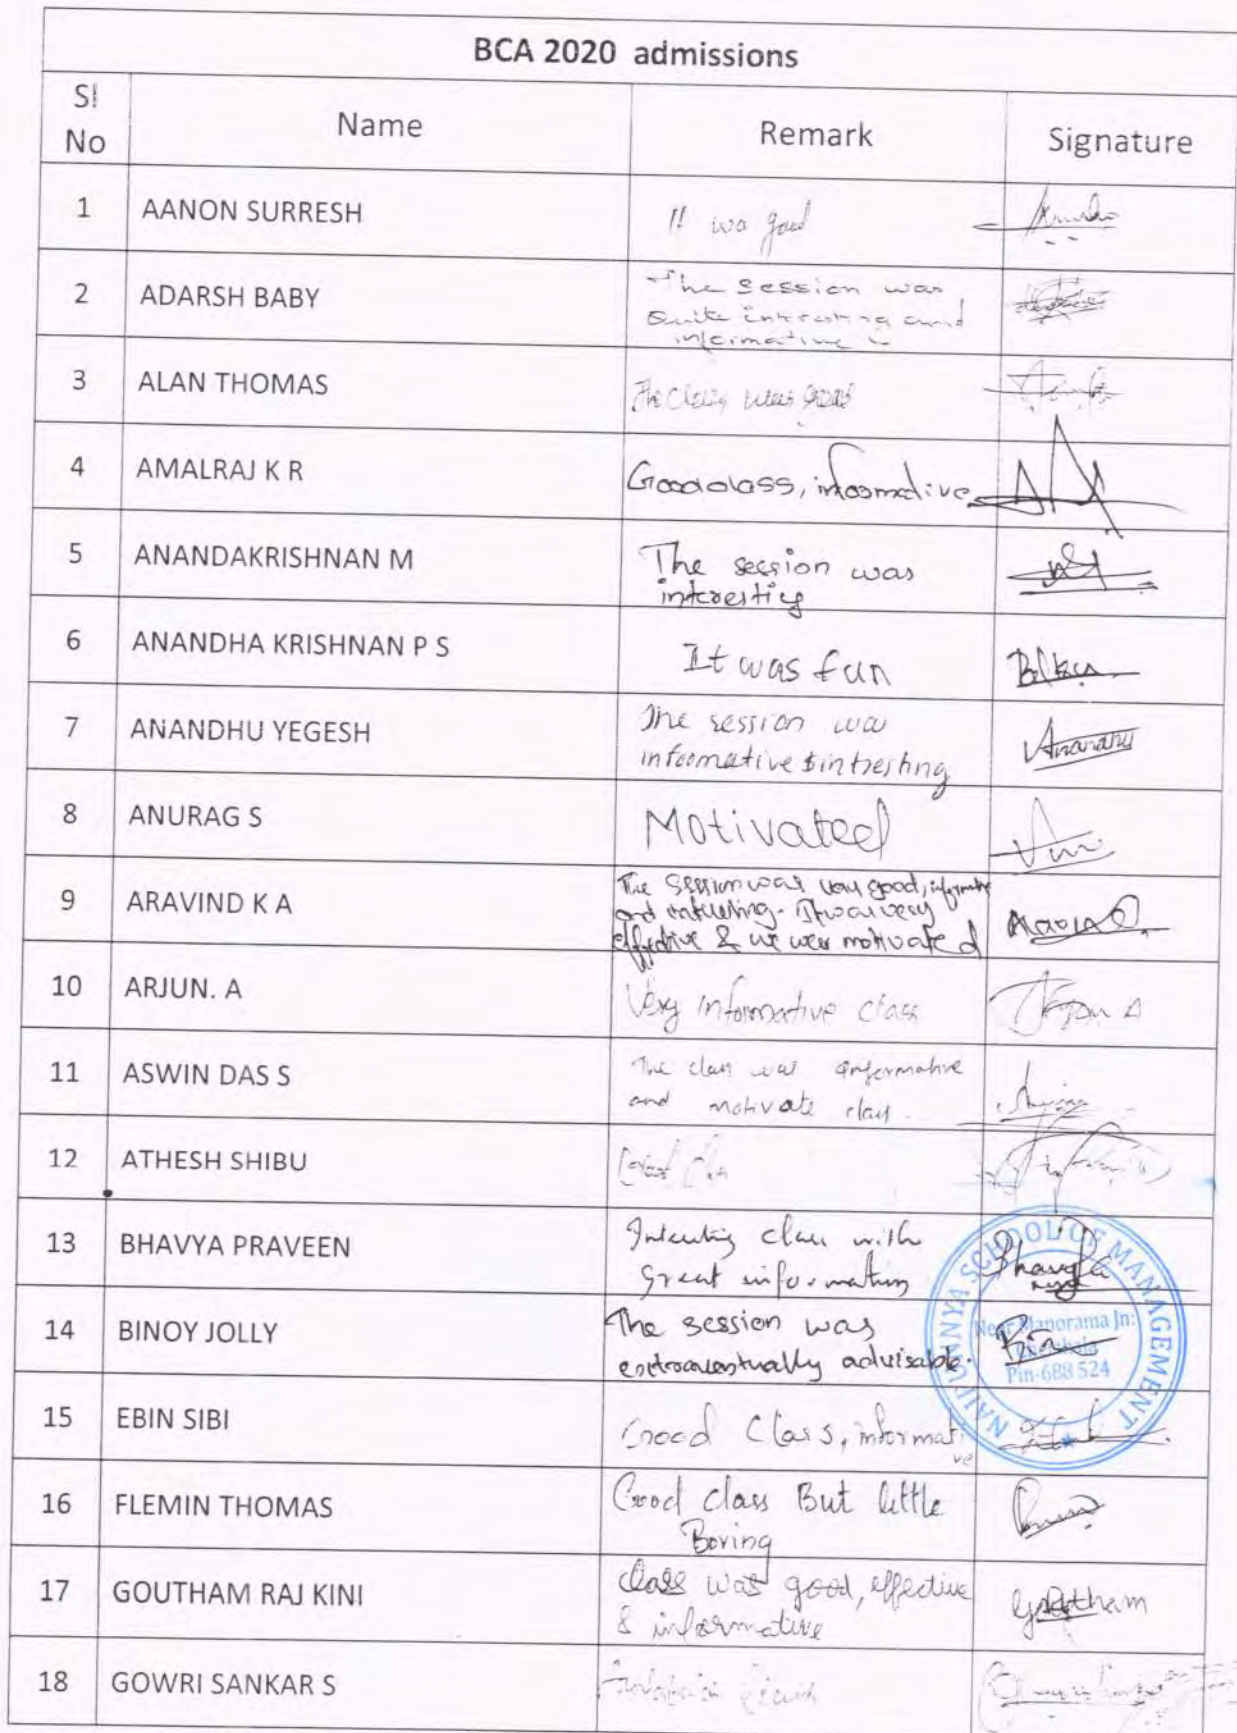 BCA 2020 admissions
Sl No Name Remark Signature
1 AANON SURRESH It wa good
2 ADARSH BABY The session was
quite intresting and
informative
3 ALAN THOMAS The class was good
4 AMALRAJ K R Good class, informative
5 ANANDAKRISHNAN M The session was
interesting
6 ANANDHA KRISHNAN P S It was fun
7 ANANDHU YEGESH The session was
informative & intresting Anandhu
8 ANURAG S Motivated
9 ARAVIND K A The session was very good, informative
and interesting. It was very
effective & we were motivated
10 ARJUN. A Very informative class Arjun A
11 ASWIN DAS S The class was informative
and motivate class.
12 ATHESH SHIBU Good class
13 BHAVYA PRAVEEN Interesting class with
great information
14 BINOY JOLLY The session was
advisable.
15 EBIN SIBI Good Class, informat
ve
16 FLEMIN THOMAS Good class But little
Boring
17 GOUTHAM RAJ KINI class was good, effective
& informative Goutham
18 GOWRI SANKAR S
NAIPUNNYA SCHOOL OF MANAGEMENT
Near Manorama Jn:
Cherthala
Pin-688 524